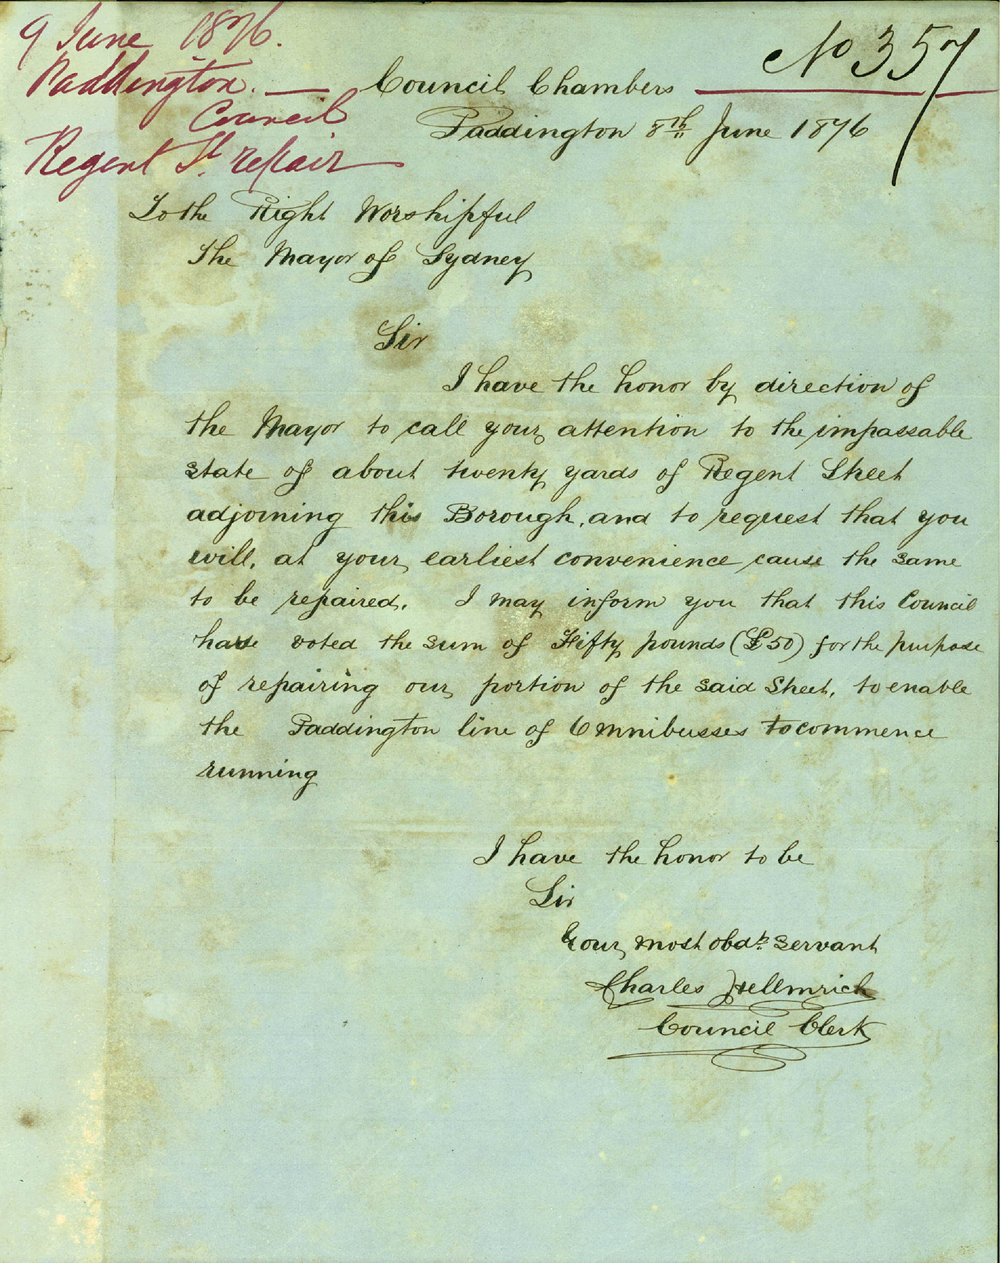 9 June 1876.
Paddington. —
Council
Regent St. repair
No 357
Council Chambers
Paddington 8th June 1876
To the Right Worshipful
The Mayor of Sydney
Sir
I have the honor by direction of
the Mayor to call your attention to the impassable
state of about twenty yards of Regent Street
adjoining this Borough, and to request that you
will, at your earliest convenience cause the same
to be repaired. I may inform you that this Council
have voted the sum of Fifty pounds (£50) for the purpose
of repairing our portion of the said Street, to enable
the Paddington line of Omnibusses to commence
running
I have the honor to be
Sir
Your most obdt. servant
Charles Hellmrich
Council Clerk